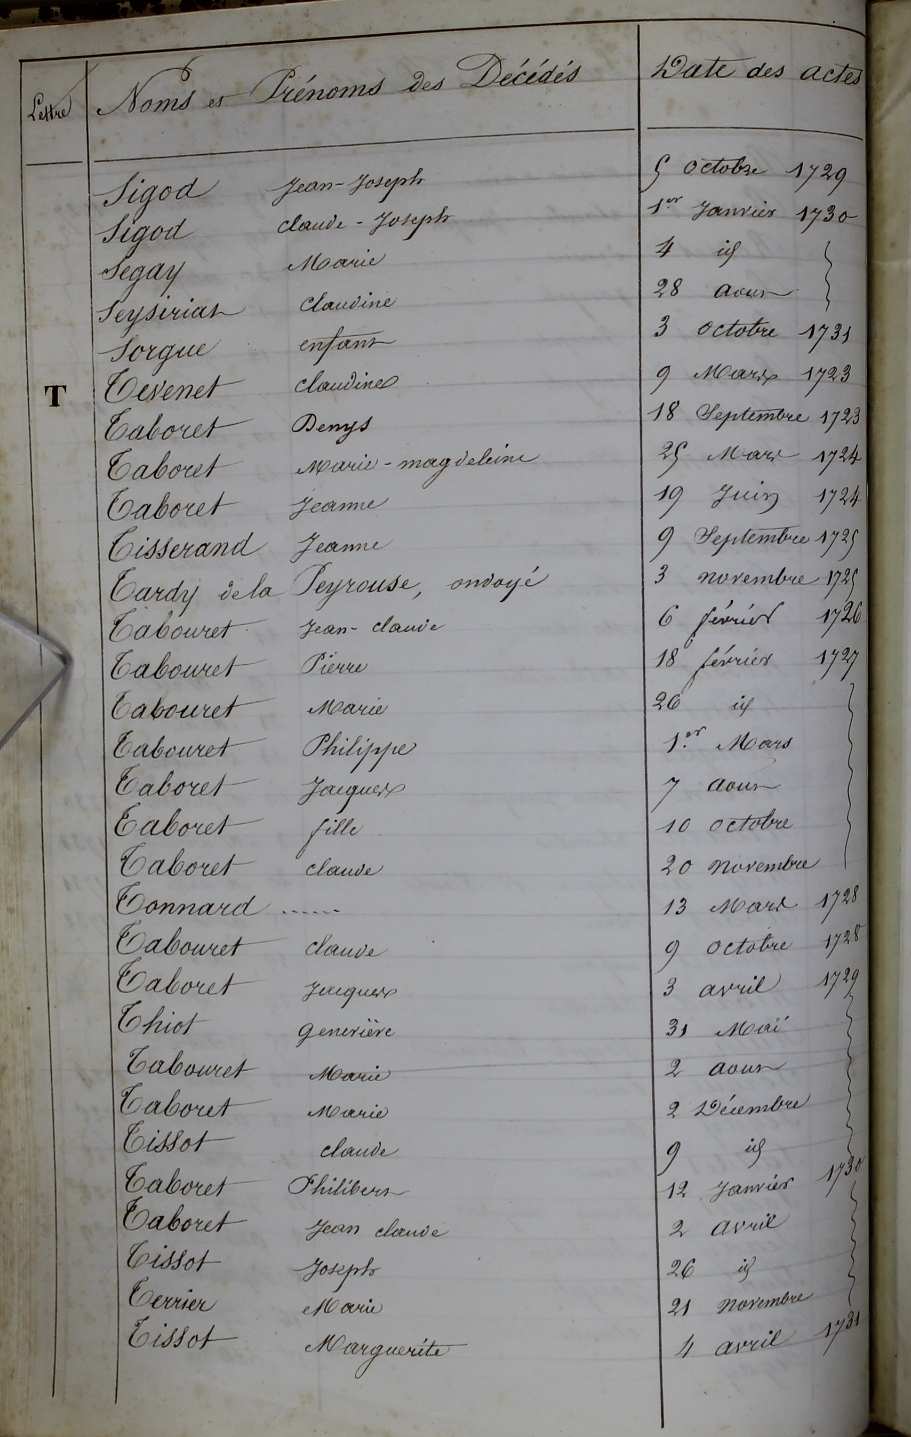 Lettre Noms et Prénoms des Décédés Date des actes
Sigod Jean-Joseph 5 octobre 1729
Sigod claude-Joseph 1.er Janvier 1730
Segay Marie 4 id
Seysiriat Claudine 28 aout
Sorgue enfant 3 octobre 1731
T Tevenet claudine 9 Mars 1723
Taboret Denys 18 Septembre 1723
Taboret Marie-magdeleine 25 Mars 1724
Taboret Jeanne 19 Juin 1724
Tisserand Jeanne 9 Septembre 1725
Tardy de la Peyrouse, ondoyé 3 novembre 1725
Tabouret Jean-claude 6 février 1726
Tabouret Pierre 18 février 1727
Tabouret Marie 26 id
Tabouret Philippe 1.er Mars
Taboret Jacques 7 aout
Taboret fille 10 octobre
Taboret claude 20 novembre
Tonnard ...... 13 Mars 1728
Tabouret claude 9 octobre 1728
Taboret Jacques 3 avril 1729
Thiot geneviève 31 Mai
Tabouret Marie 2 aout
Taboret Marie 2 Décembre
Tissot claude 9 id
Taboret Philibert 12 Janvier 1730
Taboret Jean claude 2 avril
Tissot Joseph 26 id
Terrier Marie 21 novembre
Tissot Marguerite 4 avril 1731